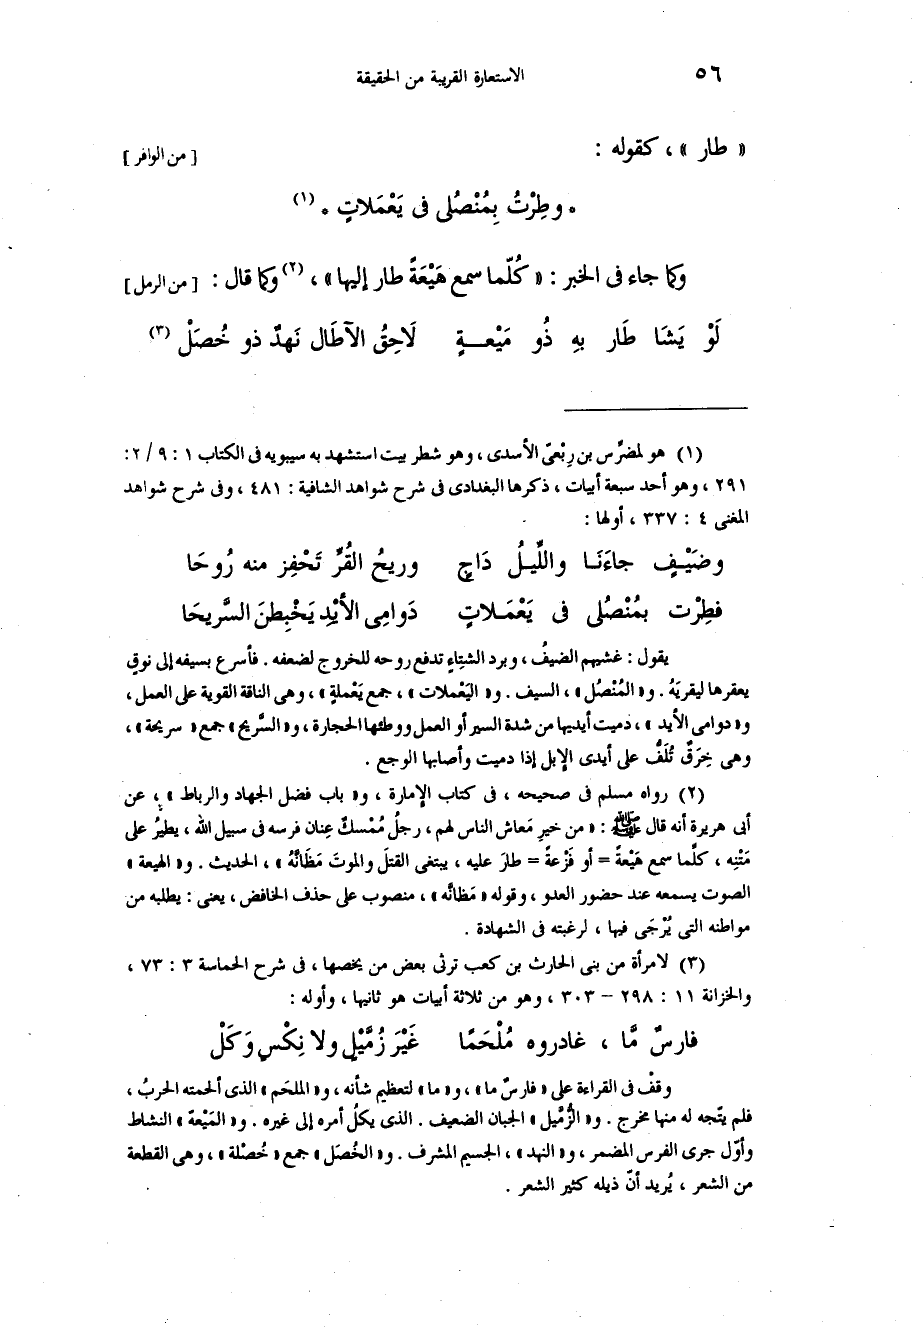 ٥٦ الاستعارة القريبة من الحقيقة
« طار » ، كقوله : [ من الوافر ]
• وطِرْتُ بِمُنْصُلى فى يَعْمَلاتٍ • (١)
وكما جاء فى الخبر : « كُلّما سمع هَيْعَةً طار إليها » ، (٢) وكما قال : [ من الرمل ]
لَوْ يَشَا طَار بهِ ذُو مَيْعــةٍ لَاحِقُ الآطَال نَهدٌ ذو خُصَلْ (٣)
(١) هو لمضرِّس بن رِبْعىّ الأسدى ، وهو شطر بيت استشهد به سيبويه فى الكتاب ١ : ٩ / ٢ :
٢٩١ ، وهو أحد سبعة أبيات ، ذكرها البغدادى فى شرح شواهد الشافية : ٤٨١ ، وفى شرح شواهد
المغنى ٤ : ٣٣٧ ، أولها :
وضَيْـفٍ جاءَنَـا واللَّيـلُ دَاجٍ وريحُ القُرِّ تَحْفِز منه رُوحَا
فطِرْت بمُنْصُلى فى يَعْمَـلاتٍ دَوامِى الأيْدِ يَخْبِطنَ السَّريحَا
يقول : غشيهم الضيفُ ، وبرد الشتاءِ تدفع روحه للخروج لضعفه . فأسرع بسيفه إلى نوقٍ
يعقرها ليقريَهُ . و« المُنْصُل » ، السيف . و« اليَعْملات » ، جمع يَعْملةٍ » ، وهى الناقة القوية على العمل ،
و« دوامى الأيد » ، دميت أيديها من شدة السير أو العمل ووطئها الحجارة ، و« السَّريح » جمع « سريحة » ،
وهى خِرَقٌ تُلَفُّ على أيدى الإبل إذا دميت وأصابها الوجع .
(٢) رواه مسلم فى صحيحه ، فى كتاب الإمارة ، و« باب فضل الجهاد والرباط » ، عن
أبى هريرة أنه قال ﷺ : « من خيرِ مَعاش الناس لهم ، رجلٌ مُمْسكٌ عِنان فرسه فى سبيل الله ، يطيرُ على
مَتْنِه ، كلّما سمع هَيْعةً = أو فَزْعةً = طارَ عليه ، يبتغى القتلَ والموتَ مَظَانَّهُ » ، الحديث . و« الهيعة »
الصوت يسمعه عند حضور العدو ، وقوله « مَظانَّه » ، منصوب على حذف الخافض ، يعنى : يطلبه من
مواطنه التى يُرْجَى فيها ، لرغبته فى الشهادة .
(٣) لامرأة من بنى الحارث بن كعب ترثى بعض من يخصها ، فى شرح الحماسة ٣ : ٧٣ ،
والخزانة ١١ : ٢٩٨ – ٣٠٣ ، وهو من ثلاثة أبيات هو ثانيها ، وأوله :
فارسٌ مَّا ، غادروه مُلْحَمًا غَيْرَ زُمَّيْلٍ ولا نِكْسٍ وَكَلْ
وقفْ فى القراءة على « فارسٌ ما » ، و« ما » لتعظيم شأنه ، و« الملحَم » الذى ألحمته الحربُ ،
فلم يتّجه له منها مخرج . و« الزُّمَّيل » الجبان الضعيف . الذى يكلُ أمره إلى غيره . و« المَيْعة » النشاط
وأوّل جرى الفرس المضمر ، و« النهد » ، الجسيم المشرف . و« الخُصَل » جمع « خُصْلة » ، وهى القطعة
من الشعر ، يُريد أنّ ذيله كثير الشعر .